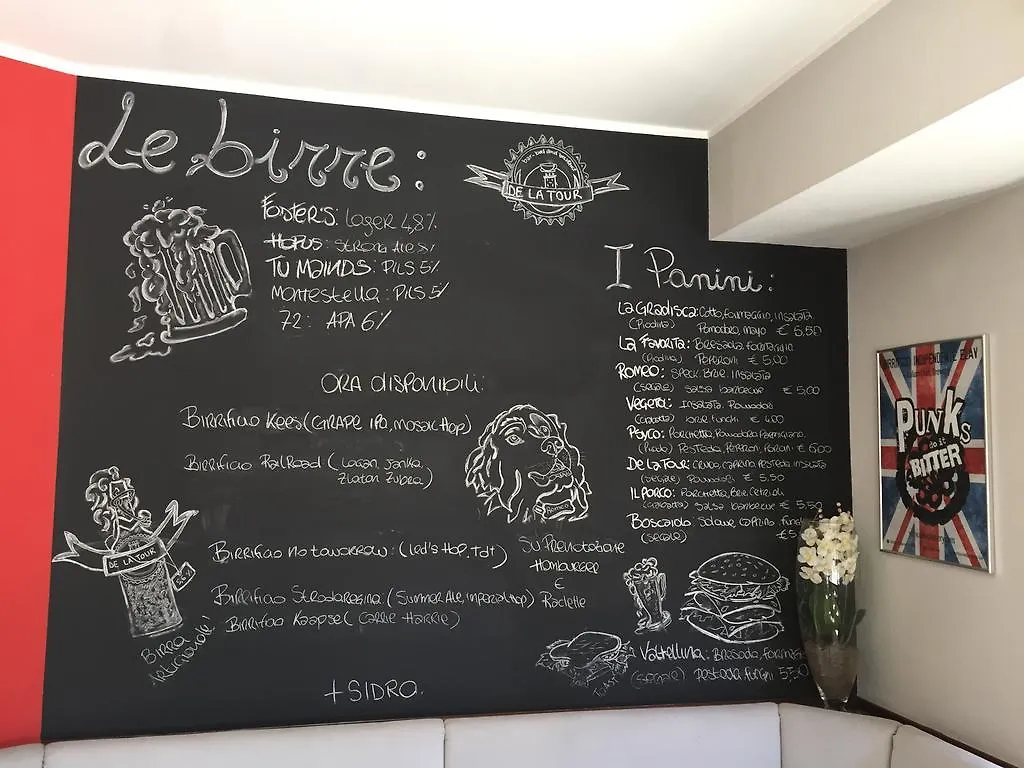 Le birre:
FOSTER'S: Lager 4,8%
HOPUS: STRONG ALE 8%
TU MAINDS: PILS 5%
Montestella: PILS 5%
72: APA 6%
ORA DISPONIBILI:
Birrificio Kees (GRAPE IPA, Mosaic Hop)
Birrificio Railroad (Logan, Janka,
Zlatan Zubra)
Birrificio no tomorrow: (Led's Hop, Tdt)
Birrificio Stradaregina (Summer Ale, Imperial Hop)
Birrificio Kaapse (Carrie Harrie)
+ SIDRO.
DE LA TOUR
BIRRA
ARTIGIANALE!
DE LA TOUR
Romeo
SU Prenotazione
Hamburger
E
Raclette
I Panini:
LA GRADISCA: Cotto, formaggio, insalata,
(Piadina) Pomodoro, mayo € 6,50
LA Favorita: Bresaola, formaggio
(Piadina) Peperoni € 5,00
ROMEO: SPECK, Brie, Insalata
(segale) salsa barbecue € 5,00
Vegeta: Insalata, Pomodori
funghi € 4,00
Psyco: Porchetta, Pomodoro, Parmigiano,
€ 6,00
De La Tour: Crudo, caprino, insalata
(segale) Pomodori € 5,50
IL PORCO: Porchetta, Brie, Cetrioli
salsa barbecue € 5,50
Boscaiolo: Salame, caprino,
(segale) € 5
Valtellina: Bresaola,
(segale) funghi 5,50
TOAST
BIRRIFICIO INDIPENDENTE ELAV
PUNKS
do it
BITTER